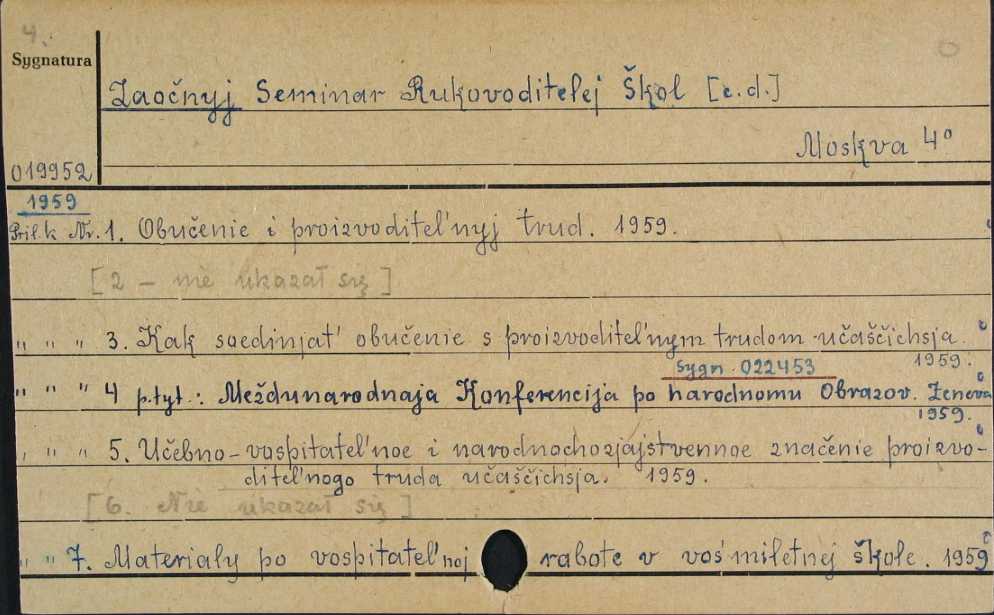 4.
Sygnatura
Zaočnyj Seminar Rukovoditelej Škol [c.d.]
Moskva 4°
019952
1959
Pril. k Nr. 1. Obučenie i proizvoditel'nyj trud. 1959.
[2 – nie ukazał się]
" " " 3. Kak soedinjat' obučenie s proizvoditel'nym trudom učaščichsja.
1959.
sygn. 022453
" " " 4 p.tyt.: Meždunarodnaja Konferencija po narodnomu Obrazov. Ženeva
1959.
" " " 5. Učebno-vospitatel'noe i narodnochozjajstvennoe značenie proizvo-
ditel'nogo truda učaščichsja. 1959.
[6. Nie ukazał się]
" " 7. Materialy po vospitatel'noj rabote v vos'miletnej škole. 1959